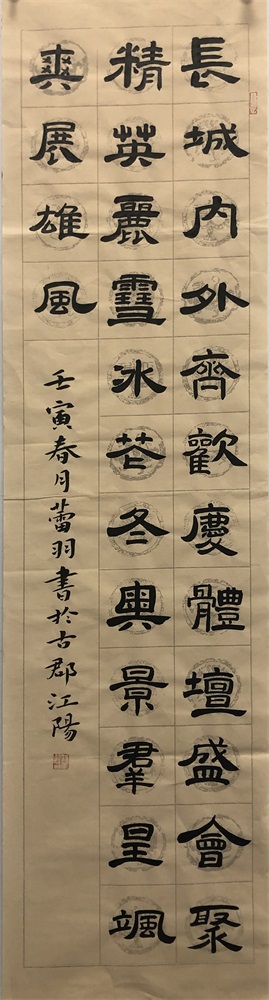 長城內外齊歡慶體壇盛會聚
精英麗雪冰芒冬奧景群呈颯
爽展雄風
壬寅春月蕾羽書於古郡江陽